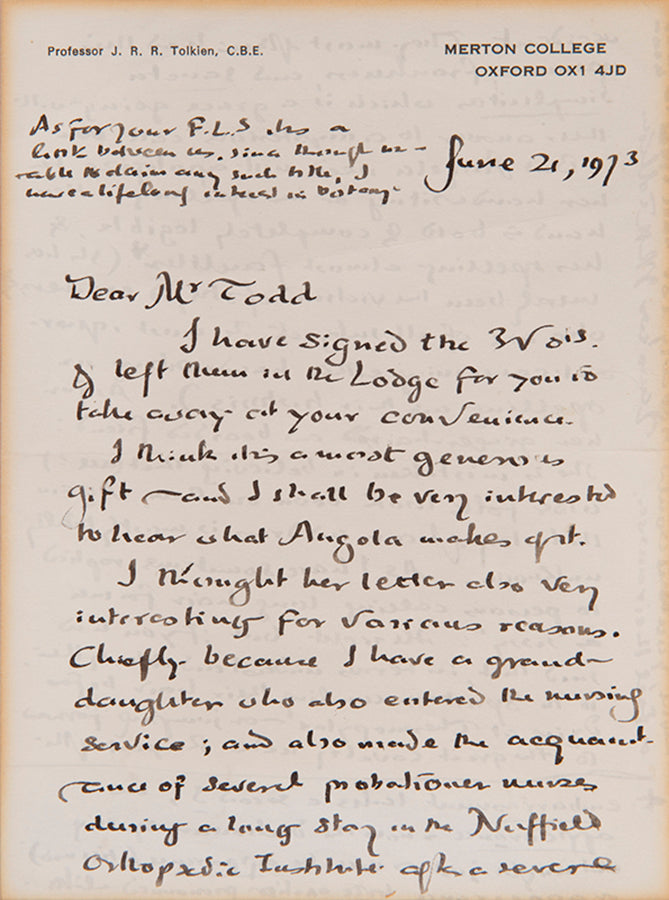 Professor J. R. R. Tolkien, C.B.E.
MERTON COLLEGE
OXFORD OX1 4JD
As for your F.L.S its a
link between us, since though un-
-able to claim any such title, I
have a lifelong interest in botany.
June 21, 1973
Dear Mr Todd
I have signed the 3 Vols.
& left them in the Lodge for you to
take away at your convenience.
I think its a most generous
gift – and I shall be very interested
to hear what Angola makes of it.
I thought her letter also very
interesting for various reasons.
Chiefly because I have a grand-
daughter who also entered the nursing
service; and also made the acquaint-
ance of several probationer nurses
during a long stay in the Nuffield
Orthopædic Institute after a severe